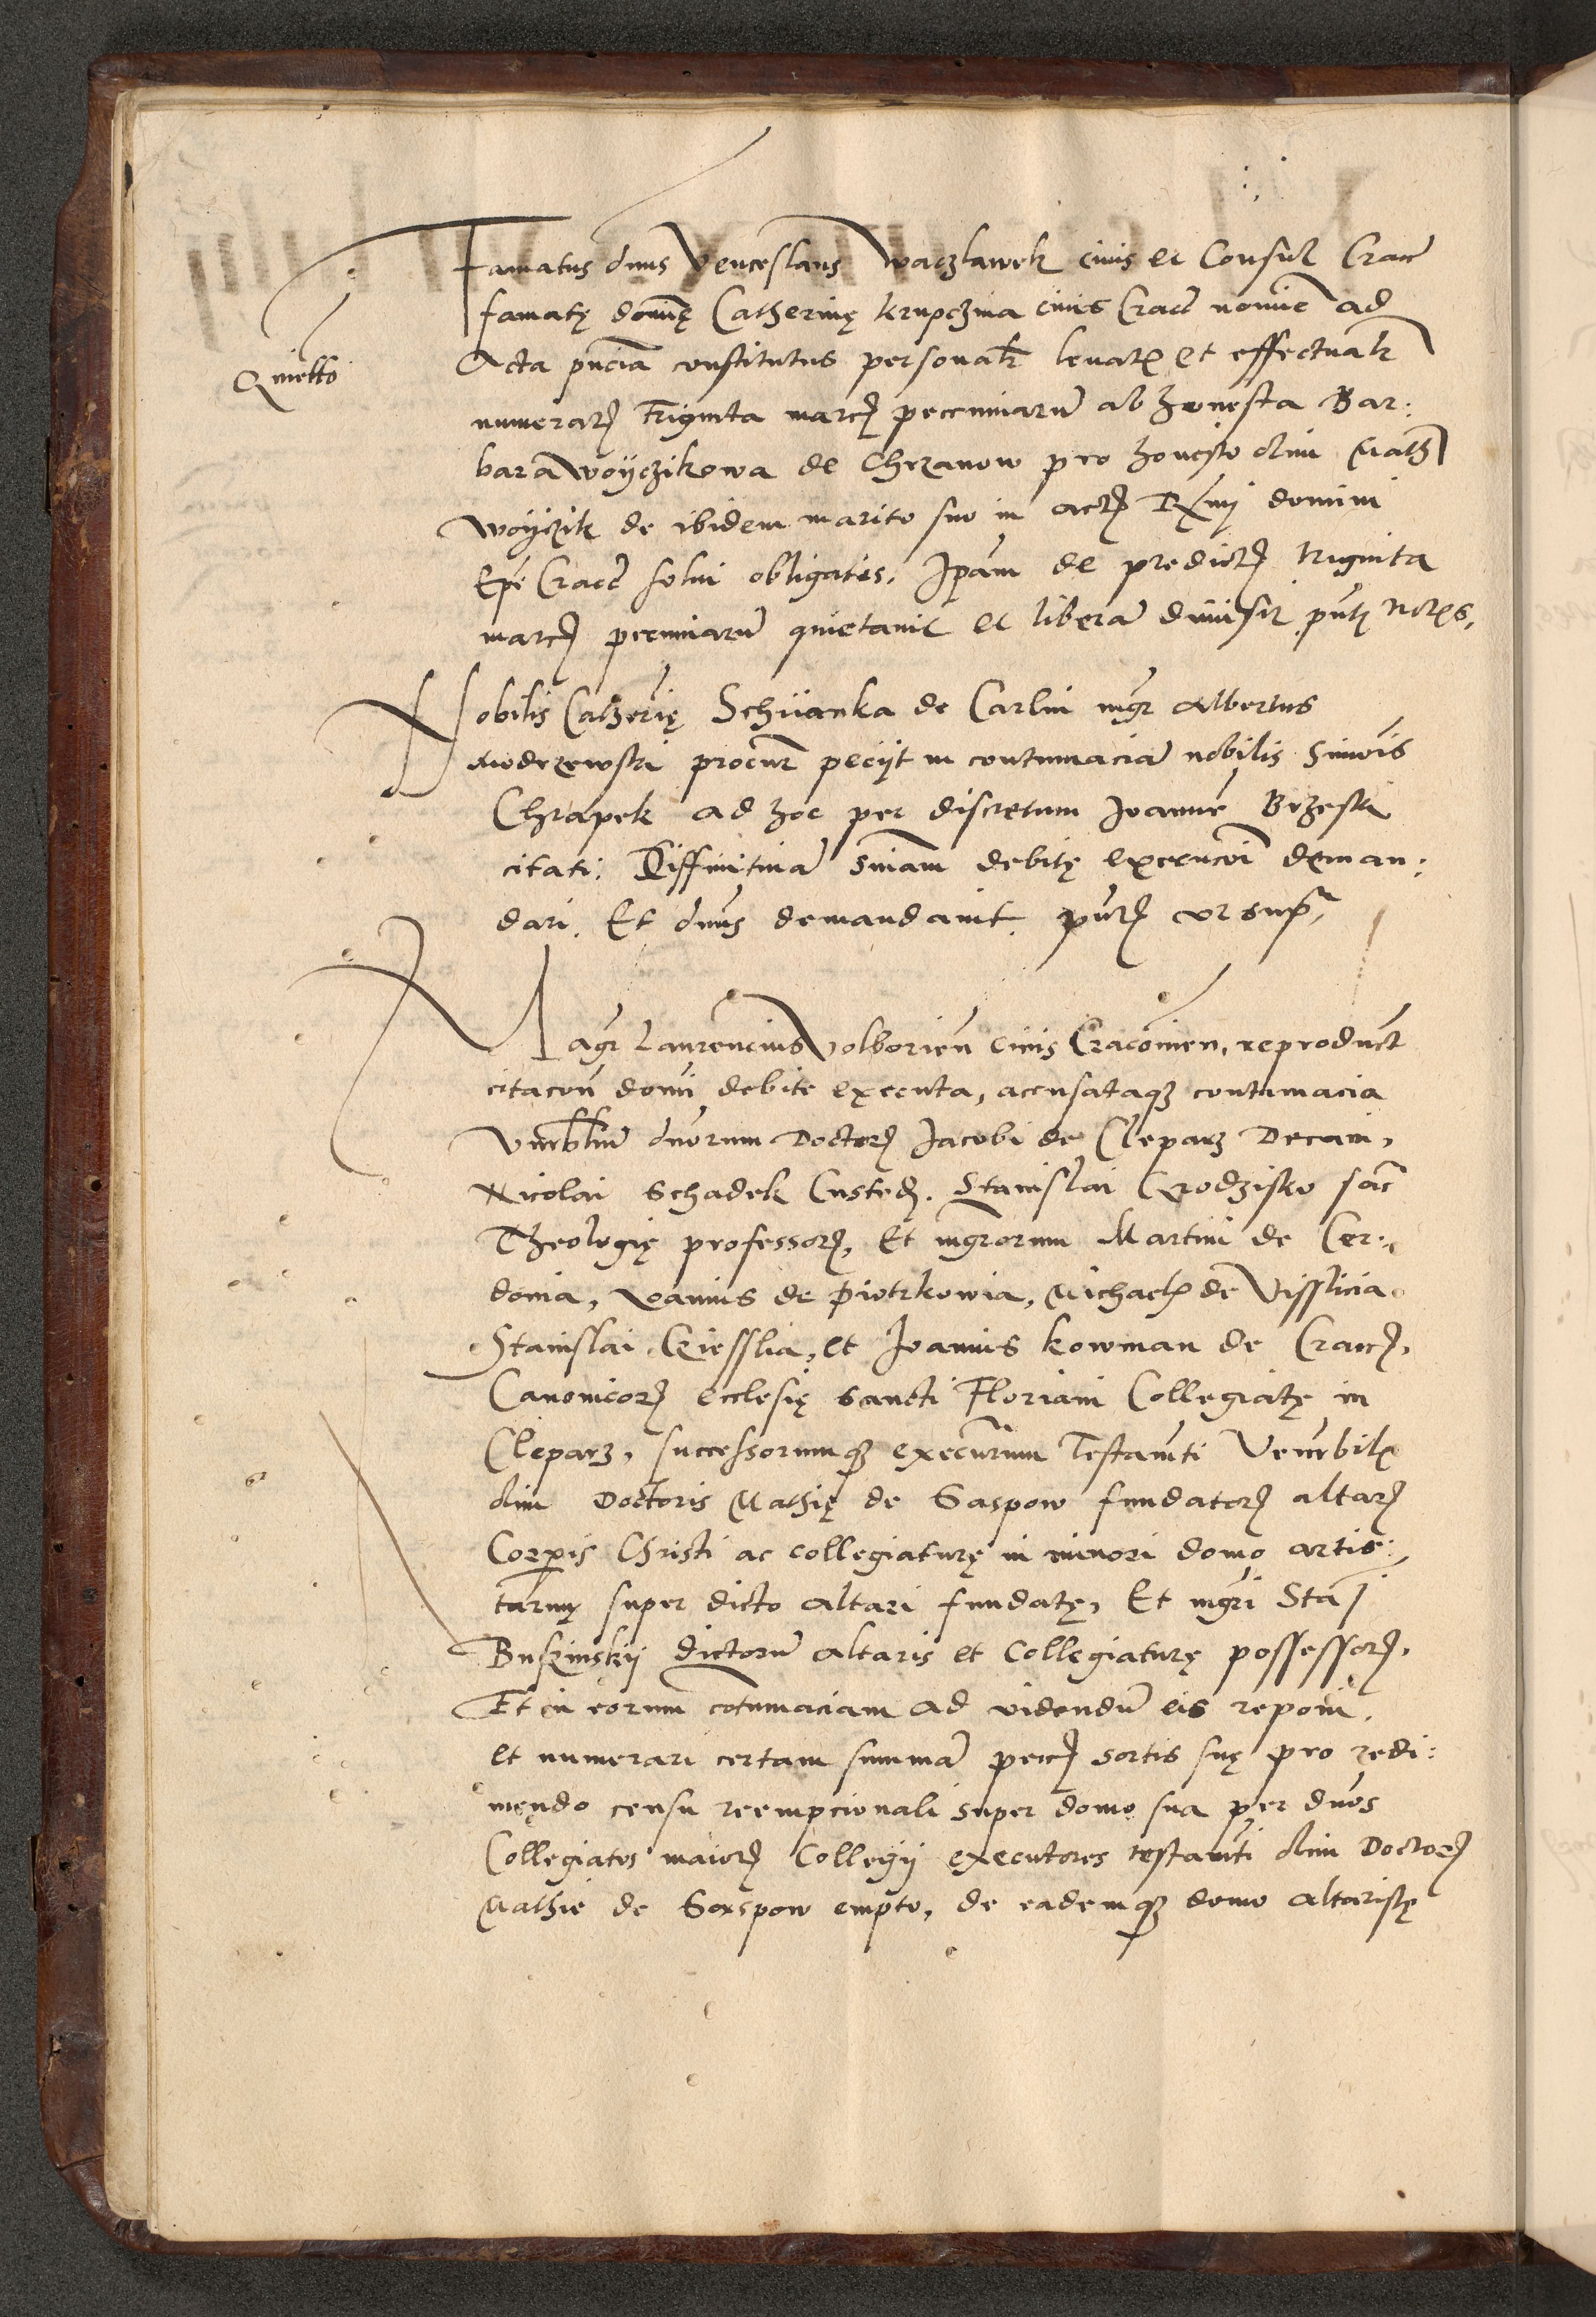 Famatus dnus Venceslaus Waczlawek civis et Consul Cracc
famatę dominę Catherinę krupczina civis Cracc nomine ad
Quietto
Acta pncia constitutus personalr levatis et effectualr
numeratis Triginta marcis pecuniaru ab honesta Bar:
bara Woyczikowa de Chrzanow pro honesto olim Math
Woyczik de ibidem marito suo in actis Rxmi domini
Epi Cracc solvi obligatis. Ipam de predictis triginta
marcis pecuniaru quietavit et libera dimisit pntibus
Nobilis Catherię Schiianka de Carlin mgr Albertus
Modrzewski procur petiit in contumacia nobilis Simois
Chrapek ad hoc per discretum Joanne Brzeski
citati. Diffinitiva sniam debitę execucoi deman:
dari. Et dnus demandavit. pntibus ut supra
Magr Laurencius Volborien civis Cracovien, reproduct
citacon domi debite executa, accusataque contumacia
Vnrbliu dnorum Doctorum Jacobi de Cleparz Decani,
Nicolai Schadek Custodis. Stanislai Grodzisko sac
Theologię professorum, Et mgrorum Martini de Cer:
donia, Joannis de Piotrkowia, Michaelis de Visslicia
Stanislai et Joannis kowman de Cracc,
Canonicorum ecclesię sancti Floriani Collegiatę in
Cleparz, successorumque execurum Testamti Venrbilis
olim Doctoris Mathię de Saspow fundatoris altaris
Corporis Christi ac collegiaturę in minori domo artis:
tarum super dicto altari fundatę, Et mgri Sta
Buszinskij dictoru altaris et Collegiaturę possessoris.
Et in eorum cotumaciam ad videndu eis reponi,
et numerari certam summa pecc sortis suę pro redi:
mendo censu reempcionali super domo sua per dnos
Collegiatos maioris Collegij executores testamti olim Doctoris
Mathie de Sarspow empto, de eademque domo altaristę